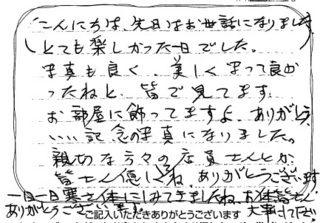 こんにちは、先日はお世話になりました
とても楽しかった一日でした。
写真も良く、美しくまって良か
ったねと、皆で見てます。
お部屋に飾ってますよ、ありがとう
いい記念の写真になりました。
親切な方々の店員さんとか
皆さん優しいね、ありがとうございます
一日一日寒さ体にはってきましたね、お体皆さん
ありがとうございます
ご記入いただきありがとうございます